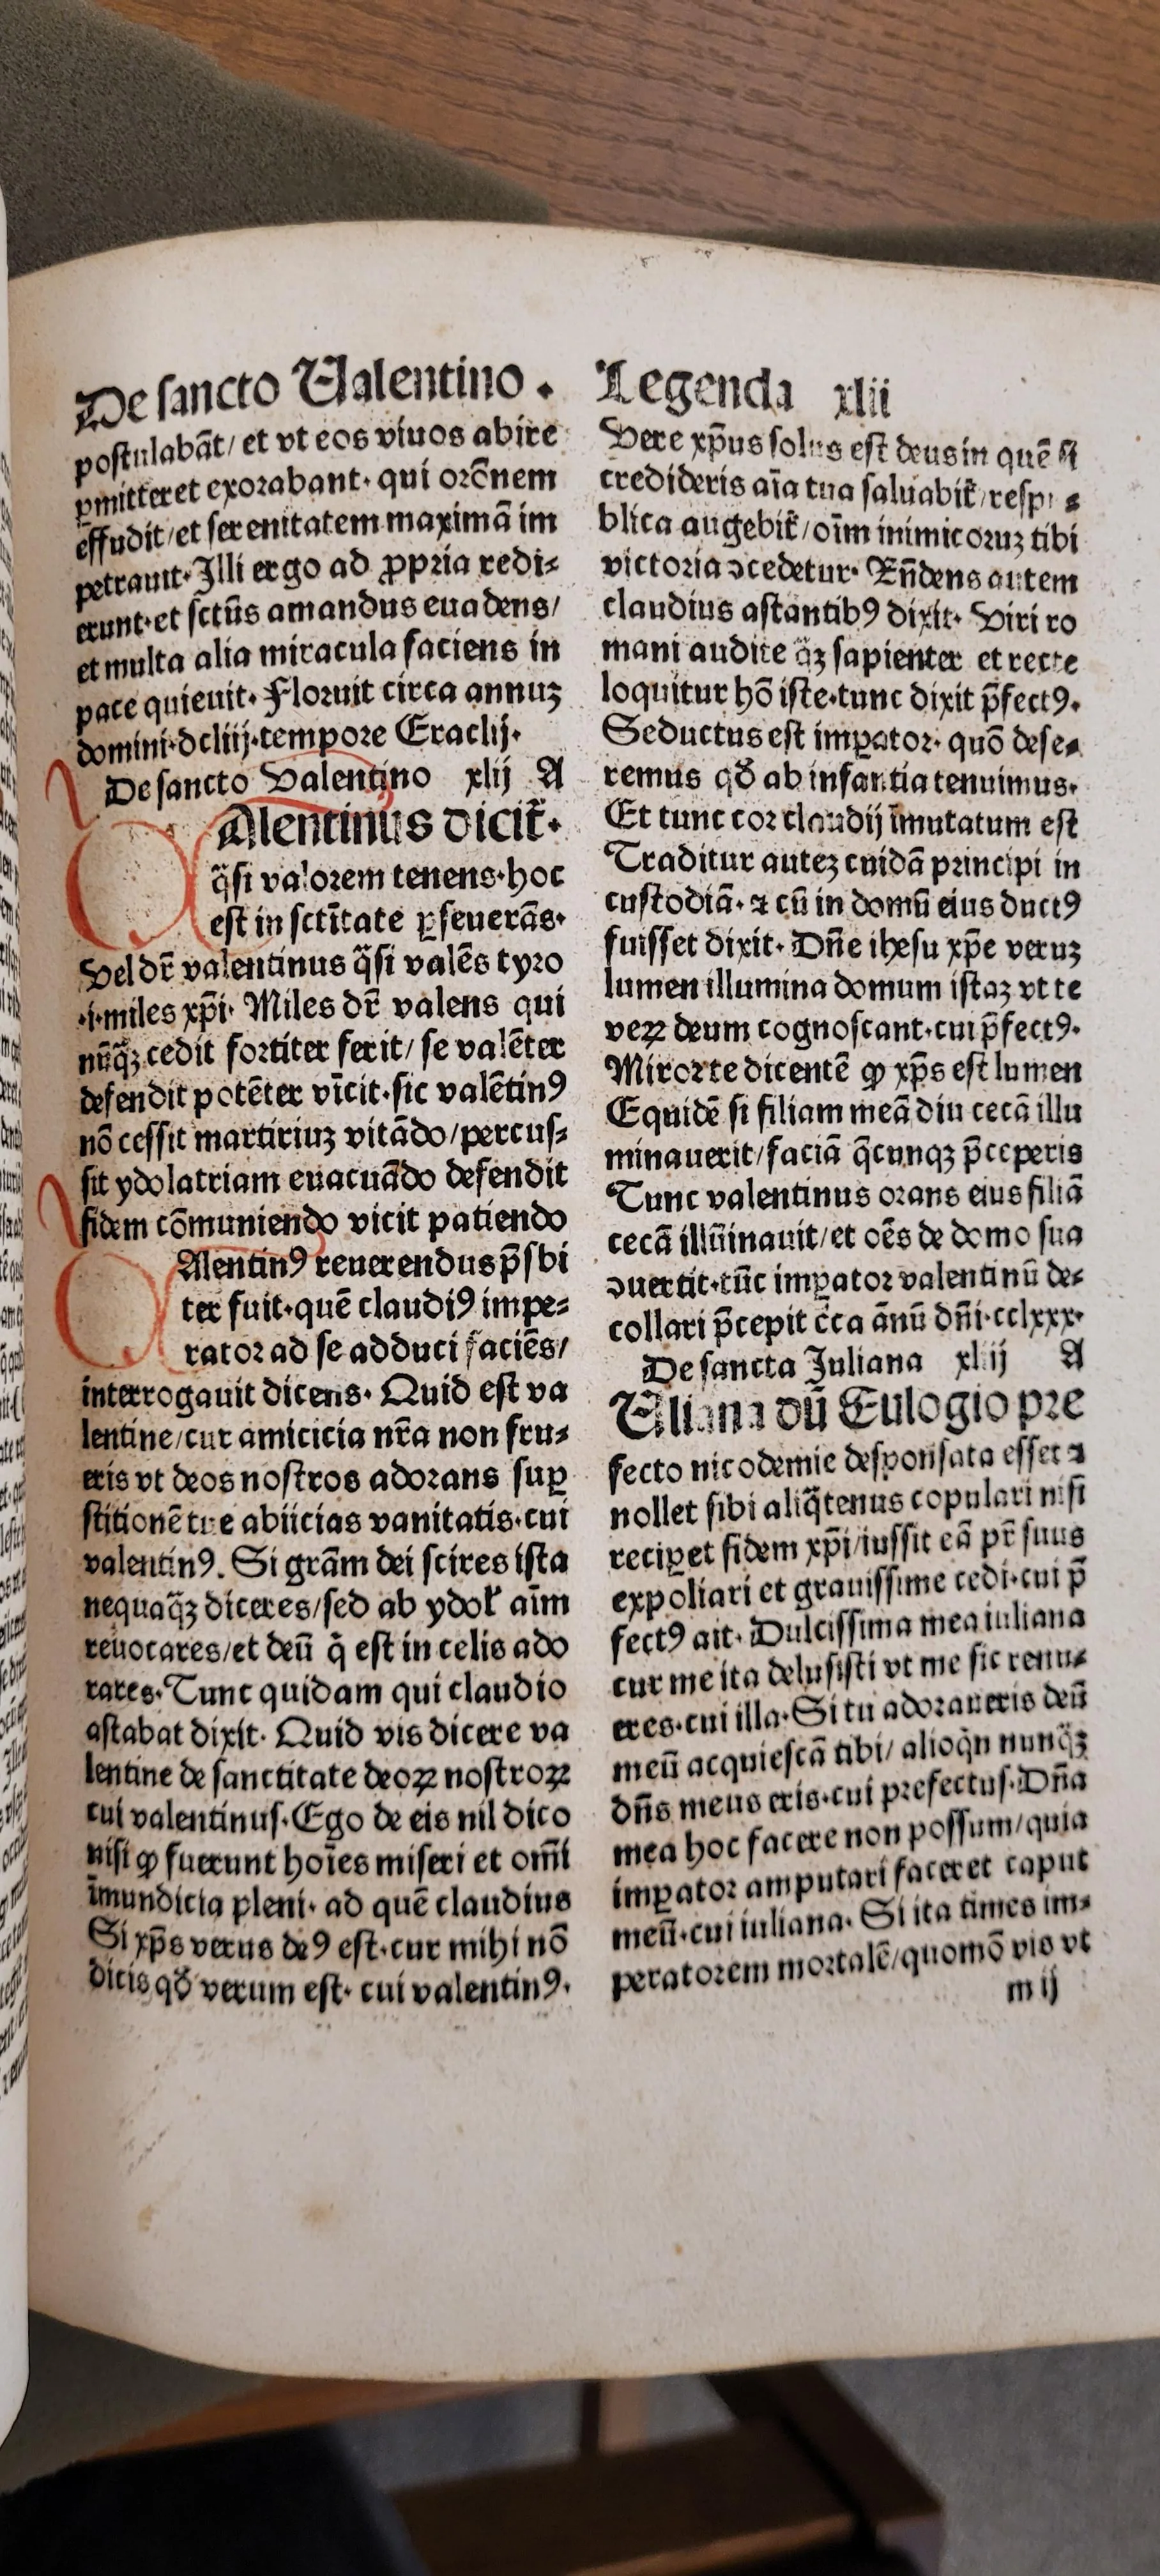 De sancto Valentino .
postulabāt/ et vt eos viuos abire
ꝑmitteret exorabant. qui orōnem
effudit/et serenitatem maximā im
petrauit. Illi ergo ad ꝓpria redi⸗
erunt. et sctūs amandus euadens/
et multa alia miracula faciens in
pace quieuit. Floruit circa annuꝫ
domini. dcliij. tempore Eraclij.
De sancto Valentino xlij A
Alentinus dicit̄.
q̈si valorem tenens. hoc
est in sctītate ꝑseuerās.
Vel dr̄ valentinus q̈si valēs tyro
.i. miles xp̄i. Miles dr̄ valens qui
nūq̈ꝫ cedit fortiter ferit/ se valēter
defendit potēter vīcit. sic valētinꝰ
nō cessit martiriuꝫ vitādo/percus⸗
sit ydolatriam euacuādo defendit
fidem cōmuniendo vicit patiendo
Alentinꝰ reuerendus p̄sbi
ter fuit. quē claudiꝰ impe⸗
rator ad se adduci faciēs/
interrogauit dicens. Quid est va
lentine/cur amicicia nr̄a non fru⸗
eris vt deos nostros adorans suꝑ
stitionē tue abiicias vanitatis. cui
valentinꝰ. Si grām dei scires ista
nequaq̈ꝫ diceres/sed ab ydol̄ aīm
reuocares/et deū q̇ est in celis ado
rares. Tunc quidam qui claudio
astabat dixit. Quid vis dicere va
lentine de sanctitate deoꝝ nostroꝝ
cui valentinus. Ego de eis nil dico
nisi ꝙ fuerunt hoīes miseri et omī
īmundicia pleni. ad quē claudius
Si xp̄s verus deꝰ est. cur mihi nō
dicis qď verum est. cui valentinꝰ.
Legenda xlii
Vere xp̄us solus est deus in quē si
credideris aīa tua saluabit̄/ respu⸗
blica augebit̄/oīm inimicoruꝫ tibi
victoria ↄcedetur. Rn̄dens autem
claudius astantibꝰ dixit. Viri ro
mani audite q̈ꝫ sapienter et recte
loquitur hō iste. tunc dixit p̄fectꝰ.
Seductus est imꝑator. quō dese⸗
remus qď ab infantia tenuimus.
Et tunc cor claudij īmutatum est
Traditur auteꝫ cuidā principi in
custodiā. ⁊ cū in domū eius ductꝰ
fuisset dixit. Dn̄e ihesu xp̄e veruꝫ
lumen illumina domum istaꝫ vt te
veꝝ deum cognoscant. cui p̄fectꝰ.
Miror te dicentē ꝙ xp̄s est lumen
Equidē si filiam meā diu cecā illu
minauerit/faciā q̄cunqꝫ p̄ceperis
Tunc valentinus orans eius filiā
cecā illūinauit/et oēs de domo sua
ↄuertit. tūc imꝑator valentinū de⸗
collari p̄cepit c̄ca ānū dn̄i. cclxxx.
De sancta Juliana xliij A
Uliana dū Eulogio pre
fecto nicodemie desponsata esset ⁊
nollet sibi aliq̈tenus copulari nisi
reciꝑet fidem xp̄i/iussit eā pr̄ suus
expoliari et grauissime cedi. cui p̄
fectꝰ ait. Dulcissima mea iuliana
cur me ita delusisti vt me sic renu⸗
eres. cui illa. Si tu adoraueris deū
meū acquiescā tibi/ alioq̇n nunq̈ꝫ
dn̄s meus eris. cui prefectus. Dn̄a
mea hoc facere non possum/quia
imꝑator amputari faceret caput
meū. cui iuliana. Si ita times im⸗
peratorem mortalē/quomō vis vt
m ij